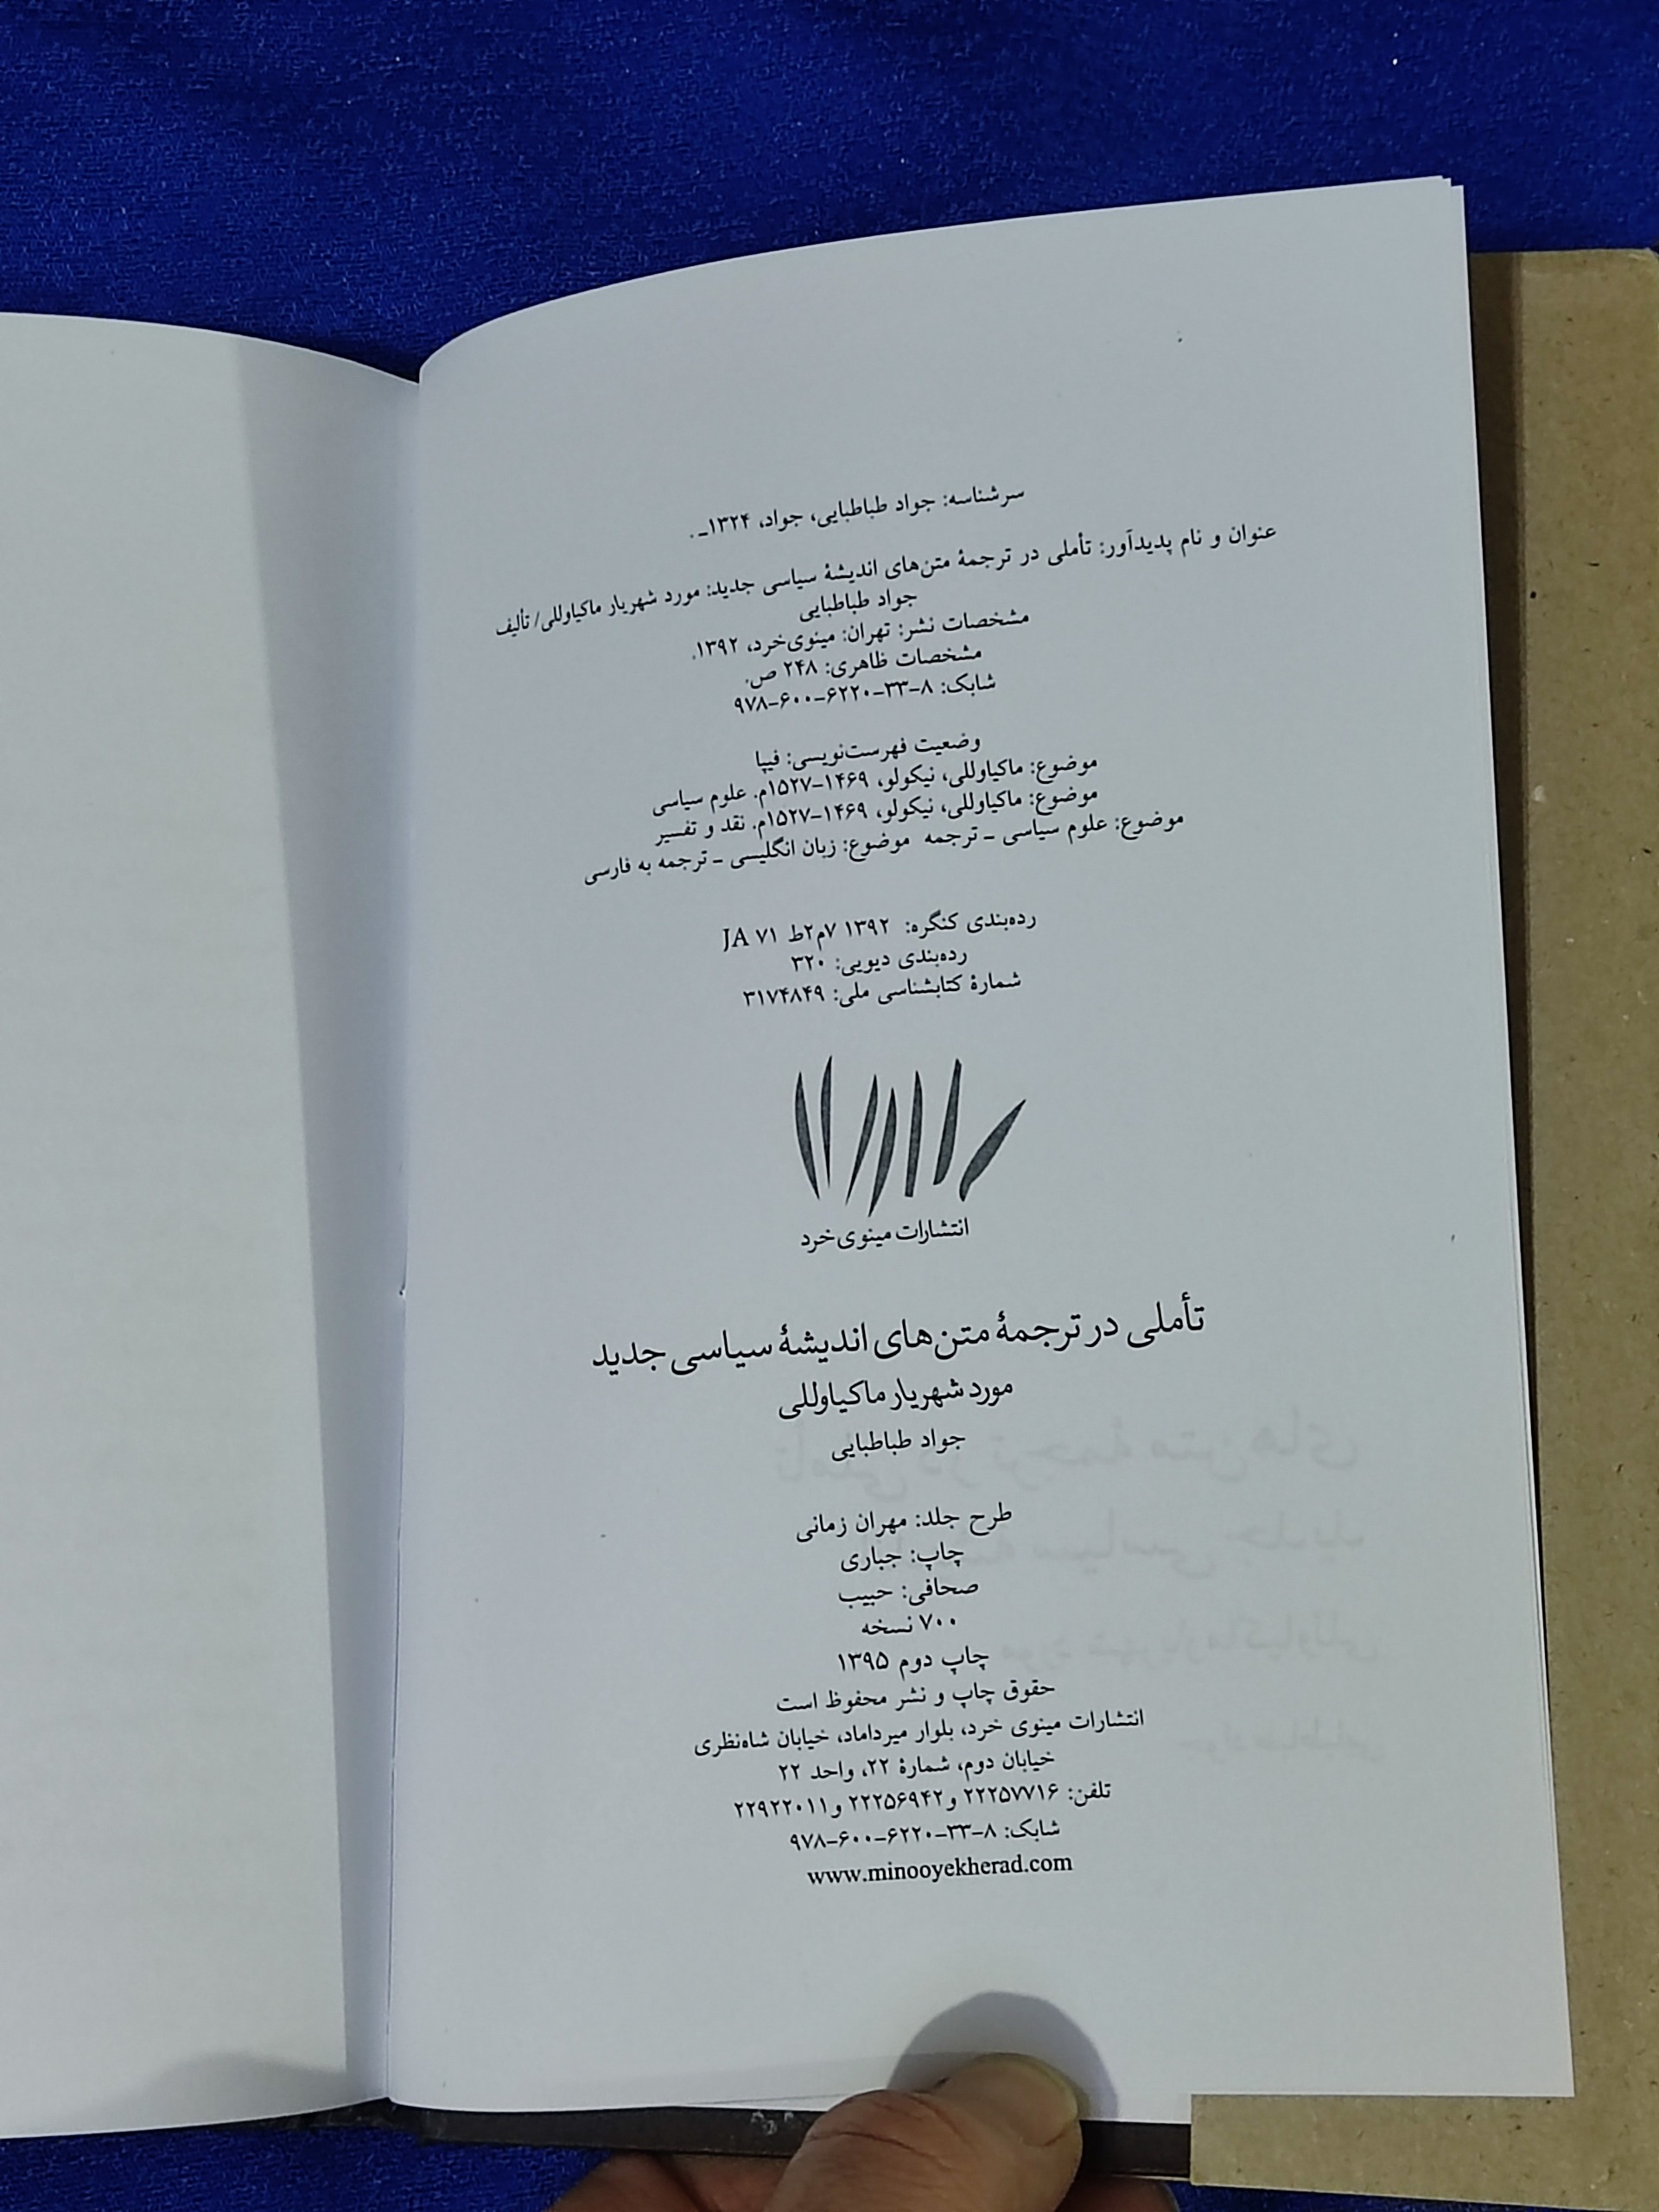 سرشناسه: جواد طباطبایی، جواد، ۱۳۲۴ـ .
عنوان و نام پدیدآور: تأملی در ترجمهٔ متن‌های اندیشهٔ سیاسی جدید: مورد شهریار ماکیاوللی/ تألیف
جواد طباطبایی
مشخصات نشر: تهران: مینوی‌خرد، ۱۳۹۲.
مشخصات ظاهری: ۲۴۸ ص.
شابک: ۸-۳۳-۶۲۲۰-۶۰۰-۹۷۸
وضعیت فهرست‌نویسی: فیپا
موضوع: ماکیاوللی، نیکولو، ۱۴۶۹-۱۵۲۷م. علوم سیاسی
موضوع: ماکیاوللی، نیکولو، ۱۴۶۹-۱۵۲۷م. نقد و تفسیر
موضوع: علوم سیاسی ـ ترجمه موضوع: زبان انگلیسی ـ ترجمه به فارسی
رده‌بندی کنگره: ۱۳۹۲ ۷م۲ط JA ۷۱
رده‌بندی دیویی: ۳۲۰
شمارهٔ کتابشناسی ملی: ۳۱۷۴۸۴۹
انتشارات مینوی‌خرد
تأملی در ترجمهٔ متن‌های اندیشهٔ سیاسی جدید
مورد شهریار ماکیاوللی
جواد طباطبایی
طرح جلد: مهران زمانی
چاپ: جباری
صحافی: حبیب
۷۰۰ نسخه
چاپ دوم ۱۳۹۵
حقوق چاپ و نشر محفوظ است
انتشارات مینوی خرد، بلوار میرداماد، خیابان شاه‌نظری
خیابان دوم، شمارهٔ ۲۲، واحد ۲۲
تلفن: ۲۲۲۵۷۷۱۶ و ۲۲۲۵۶۹۴۲ و ۲۲۹۲۲۰۱۱
شابک: ۸-۳۳-۶۲۲۰-۶۰۰-۹۷۸
www.minooyekherad.com